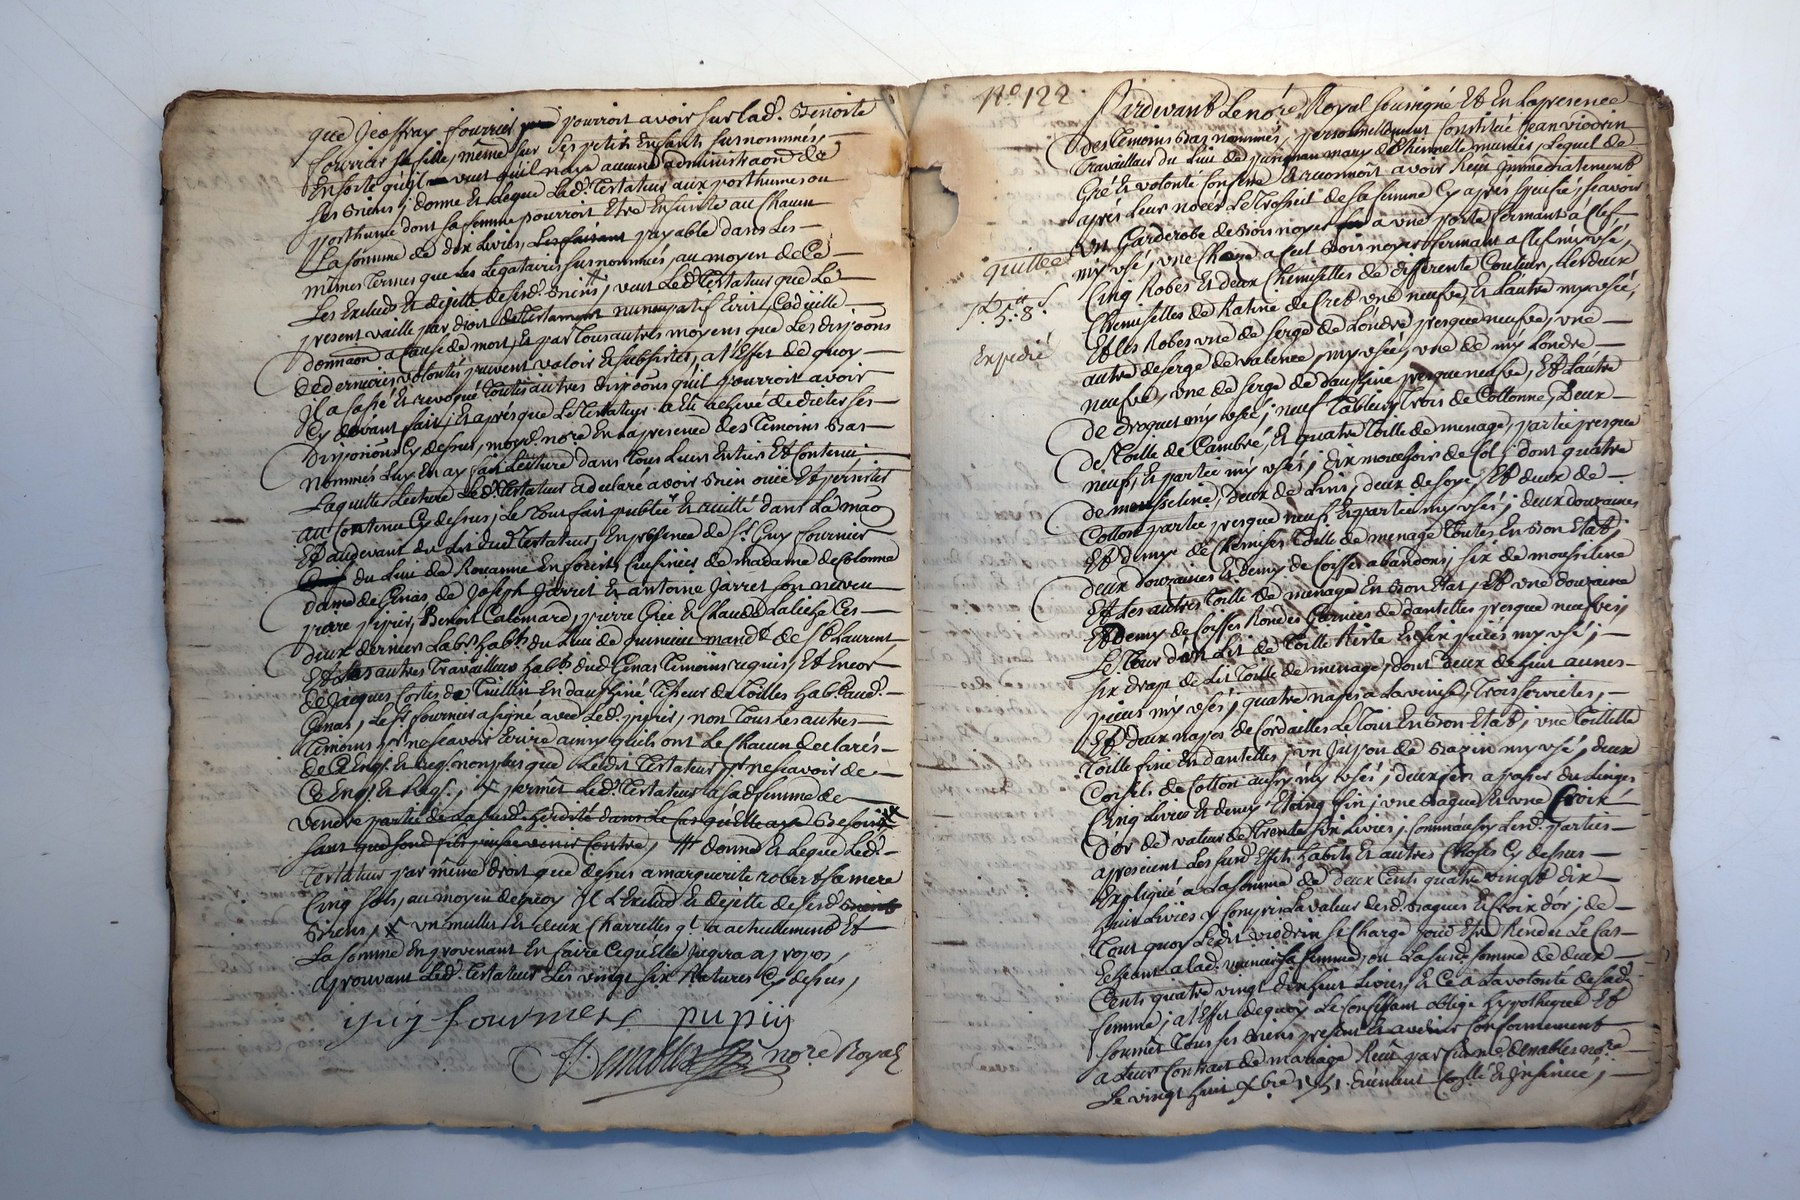 que Jeoffray fourrier pourroit avoir sur lad. Benoite
fourrier sa fille, même sur ses petits Enfants surnommés,
En sorte qu'il veut qu'il n'aye aucune administraon de
ses biens; donne et legue led. Testateur aux posthumes ou
posthume dont sa femme pourroit Etre Enceinte au Chacun
La somme de dix Livres, payable dans Les
mêmes Termes que Les Legataires surnommés, au moyen de Ce
Les Exclud Et dejette de sesd. biens, veut Led. Testateur que Le
present vaille par droit de Testament nuncupatif Ecrit, Codicille
donnaon a Cause de mort, Et par Tous autres moyens que Les dispoons
de dernieres volontés peuvent valoir Et subsister, a l'Effet de quoy
Il a Cassé Et revoqué Toutes autres dispoons qu'il pourroit avoir
Cy devant fait; Et aprés que Le Testateur a Eté achevé de dicter ses
dispoions Cy dessus, moyd. nore En la presence des Temoins bas
nommés Luy En ay fait Lecture dans Tous Leurs Entier Et Contenu;
Laquelle Lecture Led. Testateur a declaré avoir bien ouïe Et persister
au Contenu Cy dessus; Le Tout fait publié Et recitté dans La maon
Et audevant du Lit dud. Testateur, En presence de Sr. Guy fournier
du Lieu de Rouanne En forêts Cuisinier de madame de Colonne
dame de Cenas, de Joseph Jarret Et antoine Jarret son neveu
pierre pipier, Benoit Calemard, pierre Gire Et Claude Ces
deux derniers Labrs. habts. du Lieu de mandt. de St. Laurent
Et Les autres Travailleurs habts. dud. Cenas Temoins requis, Et Encor
de Jacques Cortes de Tullin En dauphiné Tisseur de Toilles habt. aud.
Cenas, Le Sr. fournier a signé avec Led. pipier, non Tous Les autres
Temoins pr. ne scavoir Ecrire ainsy qu'ils ont Le Chacun declarés
de Ce Enqs. Et Reqs. non plus que Ledit Testateur pr. ne scavoir de
Ce Enq. Et Req., permêt Led. Testateur a sad. femme de
vendre partie de La susd. heridité dans Le Cas qu'Elle aye Besoin,
sans que fils puisse venir Contre, donne Et Legue Led.
Testateur par même droit que dessus a marguerite robert sa mere
Cinq sols, au moyen de quoy Il L'Exclud Et dejette de sesd.
Biens, un mullet Et deux Charrettes qu'il a actuellement Et
La somme En provenant En faire Ce qu'Elle Jugera a propos,
aprouvant Led. Testateur Les vingt six Ratures Cy dessus,
guy fournier pupiy
Demables nore Royal
No. 122
quittce
5.. 8.
Expedié
Pardevant Le nore. Royal soussigné Et En La presence
des Temoins bas nommés, personnellement Constitué Jean viodrin
Travailleur du Lieu de mary de Chennelle munier, Lequel de
Gré Et volonté Confesse Et reconnoit avoir Reçu Immediatement
aprés Leur noces Le Trosseil de sa femme Cy aprés specifié, scavoir
un Garderobe de bois noyer a une porte fermant a Clef,
my usé, une a Ciel bois noyer fermant a Clef my usé,
Cinq Robes Et deux Chemisettes de differente Couleur, Les deux
Chemisettes de Ratine de Creb une neufve Et L'autre my usée,
Et Les Robes une de serge de Londre presque neufve, une
autre de serge de valence, my usée, une de my Londre
neufve, une de serge de dauphine presque neufve, Et L'autre
de droguet my usé; neuf Tabliers, Trois de Cottonne, Deux
de Toille de Cambré, Et quatre Toille de menage, partie presque
neuf, Et partie my usés; dix mouchoirs de Col, dont quatre
de mousseline, deux de Lins, deux de soye, Et deux de
Cotton partie presque neufs Et partie my usés; deux douzaines
Et demye de Chemises Toille de menage Toutes En bon Etat;
deux douzaines Et demy de Coiffes abandons, six de mousseline
Et Les autres Toille de menage En bon Etat, Et une douzaine
Et demy de Coiffes Rondes Garnies de dantelles presque neufves,
Le Tour d'un Lit de Toille Et six piéces my usé;
six draps de Lit Toille de menage, dont deux de huit aunes
piéces my usés; quatre napes a La venise, Trois serviétes,
Et deux napes de Cordailles Le Tout En bon Etat; une Toillette
Toille fine En dantelles, un Juppon de bazin my usé, deux
Corsets de Cotton aussy my usés; deux fers a passer du Linge;
Cinq Livres Et demy Etaing fin; une bague Et une Croix
d'or de valeur de Trente six Livres; Comm'aussy Lesd. parties
aprecient Les susd. Effets habits Et autres Choses Cy dessus
Expliqué a La somme de deux Cents quatre vingt dix
huit Livres y Compris La valeur desd. bagues Et Croix d'or; de
Tout quoy Ledit viodrin se Charge pour Etre Rendu Le Cas
Echeant a lad. munier sa femme, ou La susd. somme de deux
Cents quatre vingt dix huit Livres Et Ce a La volonté de sad.
femme; a l'Effet de quoy Le Confessant oblige hypotheque Et
soumet Tous ses biens present Et avenir Conformement
a Leur Contrat de mariage Reçu par Demables nore.
Le vingt huit Xbre 1751. duement Collé. Et Insinué;